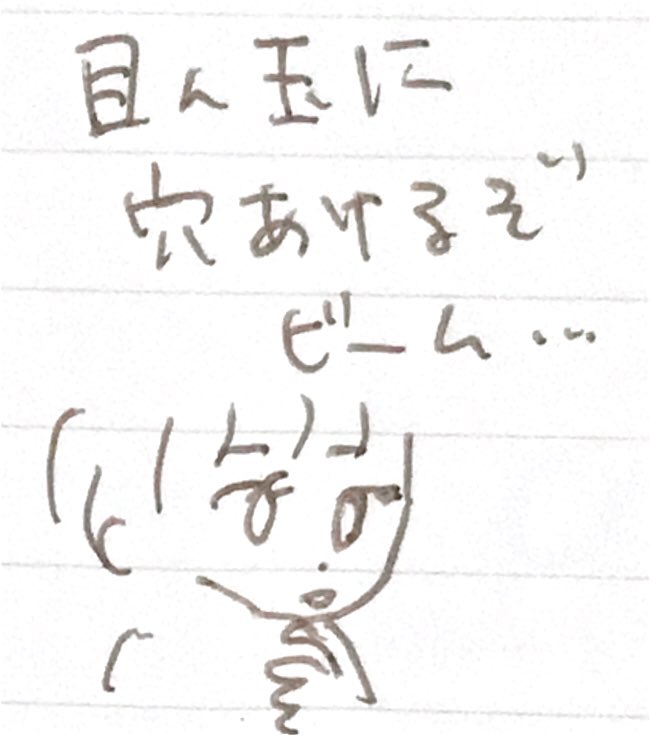 目ん玉に
穴あけるぞ
ビーム…